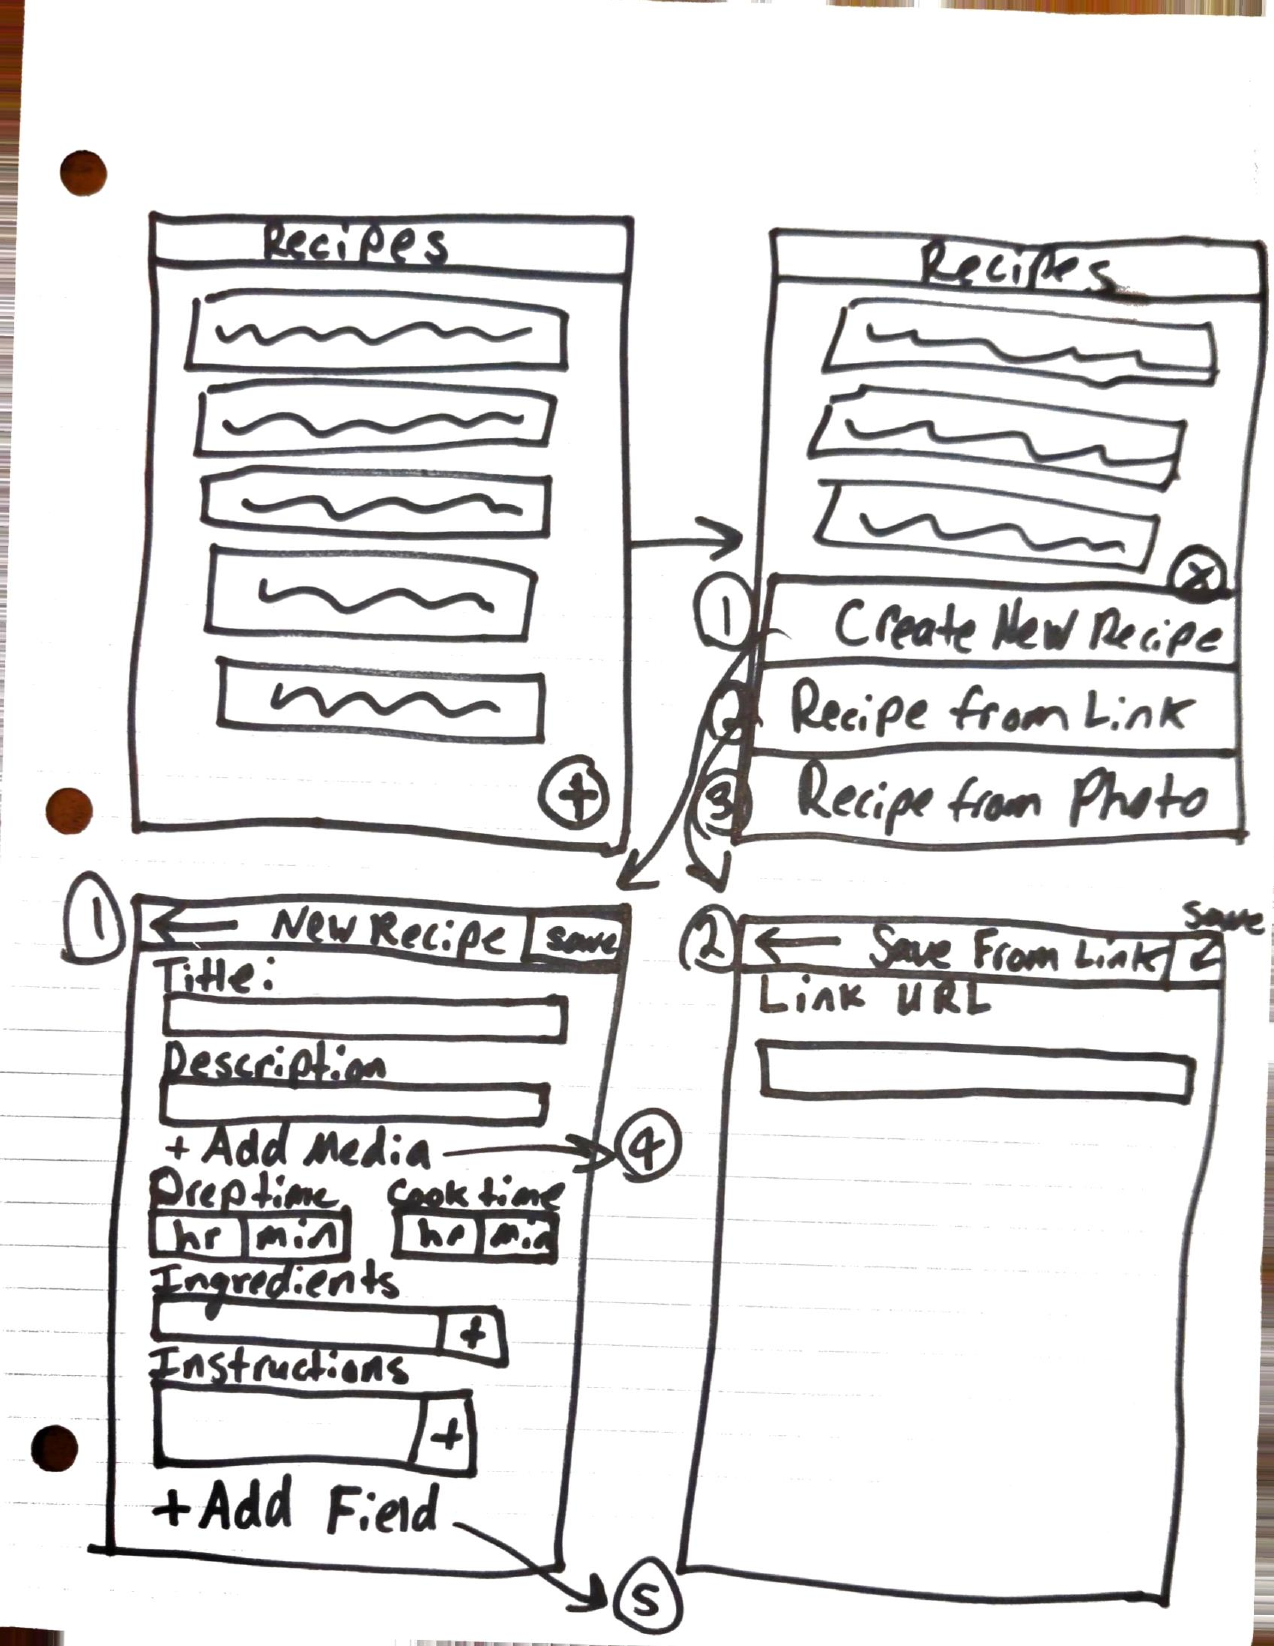 Recipes
+
Recipes
x
1 Create New Recipe
2 Recipe from Link
3 Recipe from Photo
1 New Recipe save
Title:
Description
+ Add Media 4
Prep time Cook time
hr min hr min
Ingredients
+
Instructions
+
+ Add Field 5
2 Save From Link save
Link URL